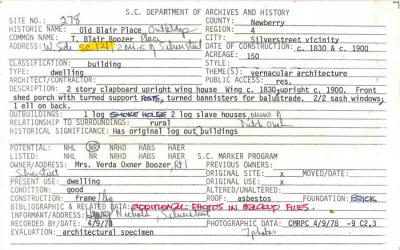 S.C. DEPARTMENT OF ARCHIVES AND HISTORY
SITE NO.: 278 COUNTY: Newberry
HISTORIC NAME: Old Blair Place REGION: 4
COMMON NAME: T. Blair Boozer Place Silverstreet vicinity
ADDRESS: W. Side SC 121, 2 Mi. S of Silverstreet DATE OF CONSTRUCTION: c. 1830 & c. 1900
ACREAGE: 150
CLASSIFICATION: building STYLE:
TYPE: dwelling THEME(S): vernacular architecture
ARCHITECT/CONTRACTOR: PUBLIC ACCESS: res.
DESCRIPTION: 2 story clapboard upright wing house Wing c. 1830, upright c. 1900. Front
shed porch with turned support POSTS, turned bannisters for balustrade. 2/2 sash windows,
1 ell on back.
OUTBUILDINGS: 1 log SMOKE HOUSE 2 log slave houses,
RELATIONSHIP TO SURROUNDINGS: rural
HISTORICAL SIGNIFICANCE: Has original log out buildings
POTENTIAL: NHL NR NRHD HABS HAER
LISTED: NHL NR NRHD HABS HAER S.C. MARKER PROGRAM
OWNER/ADDRESS: Mrs. Verda Oxner Boozer, Rt 1 PREVIOUS OWNERS:
Silverstreet ORIGINAL SITE: x MOVED/DATE:
PRESENT USE: dwelling ORIGINAL USE: x
CONDITION: good ALTERED/UNALTERED:
CONSTRUCTION: frame/log ROOF: asbestos FOUNDATION: BRICK
BIBLIOGRAPHIC & RELATED DATA: ADDITIONAL PHOTOS IN BACKUP FILES.
INFORMANT/ADDRESS: Nichols, Silverstreet
RECORDED BY/DATE: 4/9/78 PHOTOGRAPHIC DATA: CMRPC 4/9/78 -9 C2,3
EVALUATION: architectural specimen 7 photos